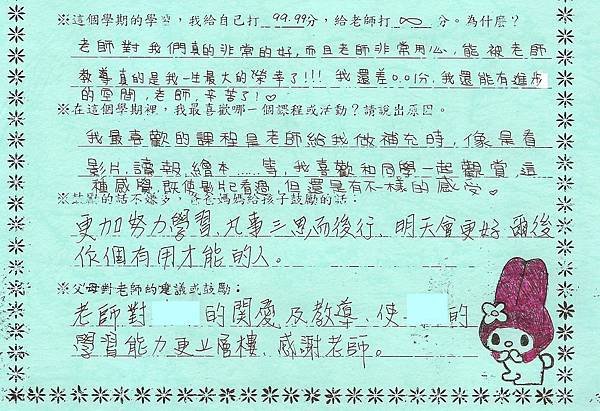 ※這個學期的學習，我給自己打 99.99分，給老師打 ∞ 分。為什麼？
老師對我們真的非常的好，而且老師非常用心，能被老師
教導真的是我一生最大的榮幸了!!! 我還差0.01分，我還能有進步
的空間，老師，辛苦了!♡
※在這個學期裡，我最喜歡哪一個課程或活動？請說出原因。
我最喜歡的課程是老師給我做補充時，像是看
影片，讀報，繪本……等，我喜歡和同學一起觀賞，這
種感覺，既使影片已看過，但還是有不一樣的感受♡
※鼓勵的話不嫌多，請爸媽媽給孩子鼓勵的話：
更加努力學習、凡事三思而後行、明天會更好 爾後
作個有用才能的人。
※父母對老師的建議或鼓勵：
老師對 的関愛及教導、使 的
學習能力更上層樓、感謝老師。